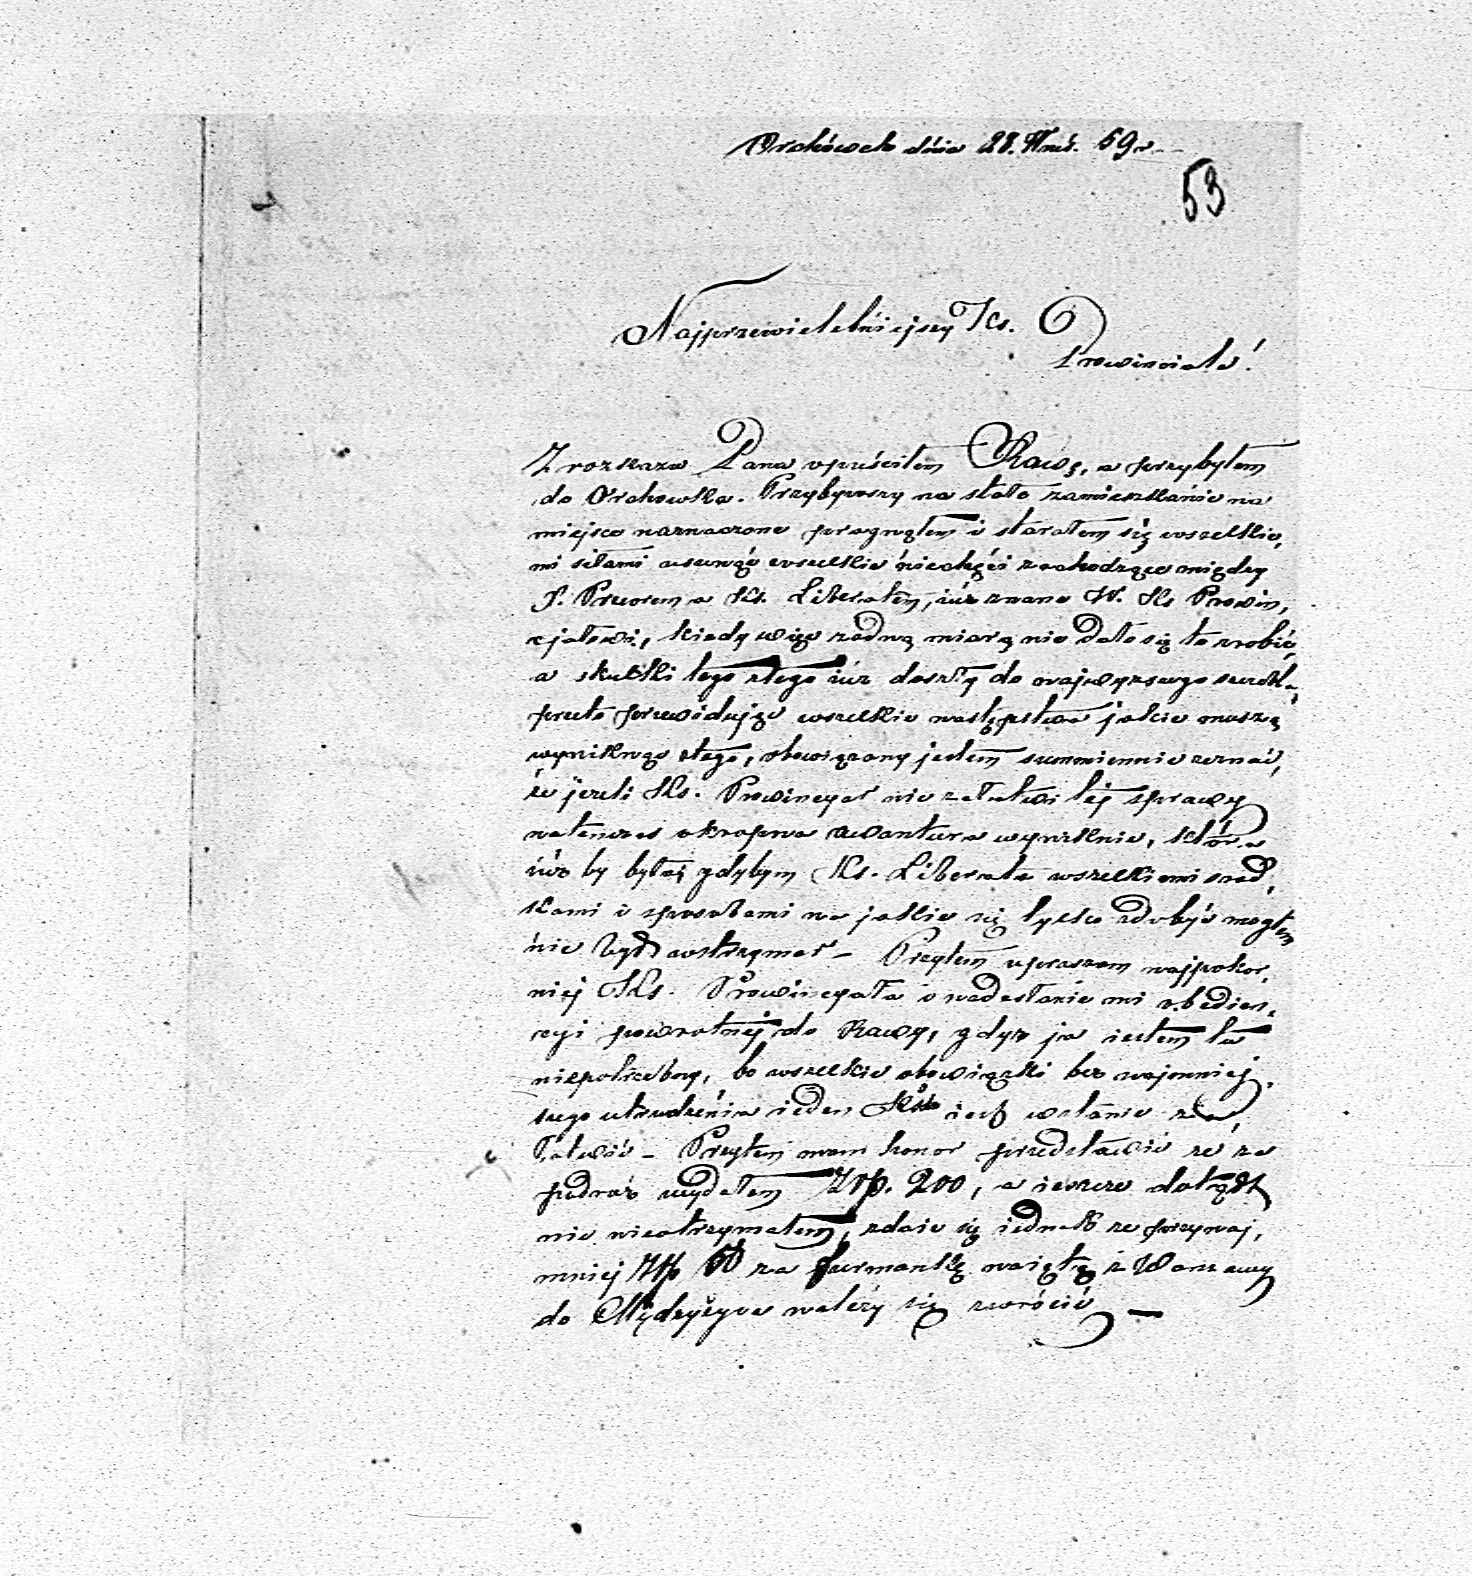 Orchówek dnia 28. Wrześ. 69 r.
53
Najprzewielebniejszy Ks.
Prowinciale!
Z rozkazu Pana opuściłem Rawę, a przybyłem
do Orchowka. Przybywszy na stałe zamieszkanie na
miejsce naznaczone pragnąłem i starałem się wszelkie,
mi siłami usunąć wszelkie niechęci zachodzące między
P. Przeorem a Ks. Liberatem, iuż znane W. Ks Prowin,
cjałowi, kiedy więc żadną miarą nie dało się to zrobić,
a skutki tego złego iuż doszły do najwyższego
przeto przewidując wszelkie następstwa jakie muszą
wyniknąć złego, obowiązany jestem summiennie zeznać,
że jeżeli Ks. Prowincyał nie załatwi tej sprawy
natenczas okropna awantura wyniknie, która
iuż by była, gdybym Ks. Liberata wszelkiemi środ,
kami i sposobami na jakie się tylko zdobyć mogłem
nie był wstrzymał – Przytem upraszam najpokor,
niej Ks. Prowincyała o nadesłanie mi obedien,
cyi powrotnej do Rawy, gdyż ja iestem tu
niepotrzebny, bo wszelkie obowiązki bez najmniej,
szego utrudzenia ieden Ks. iest wstanie za,
łatwić – Przytem mam honor przedstawić że za
podróż wydałem Złp. 200, a ieszcze dotąd
nic nieotrzymałem, zdaie się iednak że przynaj,
mniej Złp za furmankę naiętą z Warszawy
do Międzyrzyca należy się zwrócić –